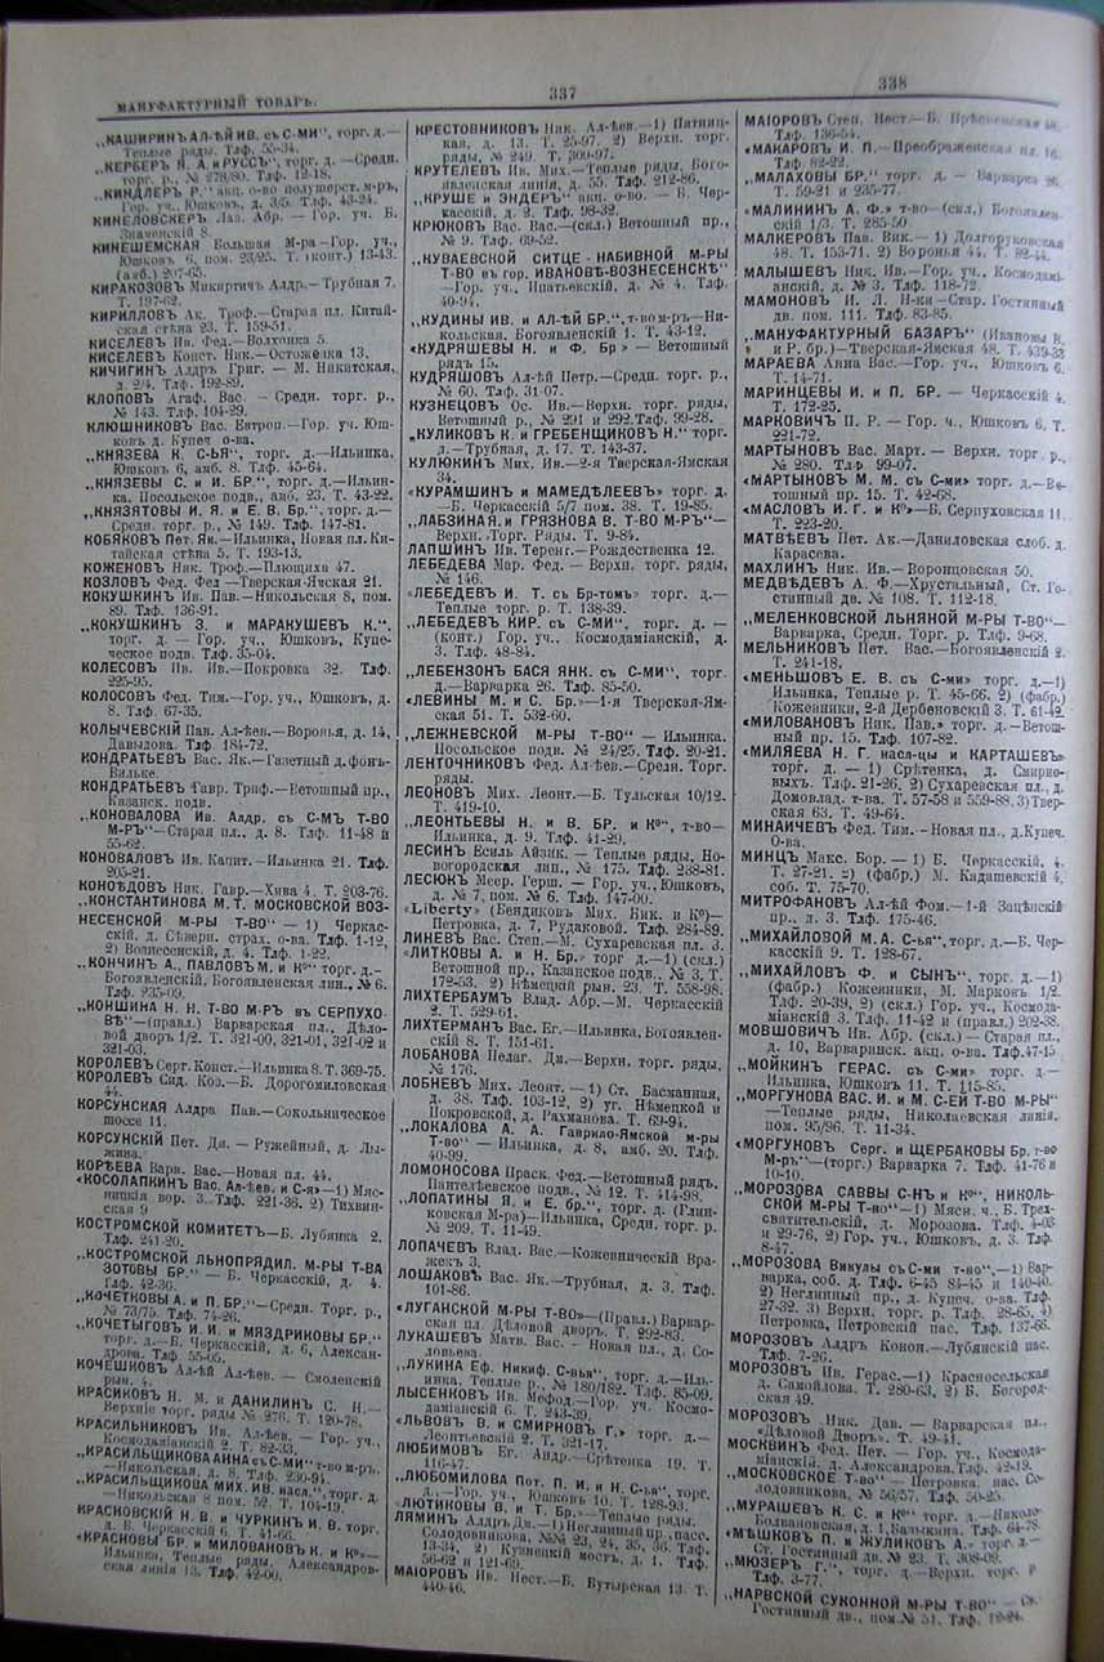 МАНУФАКТУРНЫЙ ТОВАРЪ.
337
338
„КАШИРИНЪ АЛ-ѢЙ ИВ. съ С-МИ“, торг. д.—
Теплые ряды. Тлф. 55-34.
„КЕРБЕРЪ Я. А. и РУССЪ“, торг. д. —Средн.
торг. р., № 278/80. Тлф. 12-18.
„КИНДЛЕРЪ Р.“ акц. о-во полушерст. м-ръ,
Гор. уч., Юшковъ, д. 3/5. Тлф. 43-24.
КИНЕЛОВСКЕРЪ Лаз. Абр. — Гор. уч. Б.
Знаменскій 8.
КИНЕШЕМСКАЯ Большая М-ра—Гор. уч.,
Юшковъ 6, пом. 23/25. Т. (конт.) 13-43.
(амб.) 207-65.
КИРАКОЗОВЪ Микиртичъ Алдр.—Трубная 7.
Т. 197-62.
КИРИЛЛОВЪ Ак. Троф.—Старая пл. Китай-
ская стѣна 23. Т. 159-51.
КИСЕЛЕВЪ Ив. Фед.—Волхонка 5.
КИСЕЛЕВЪ Конст. Ник.—Остоженка 13.
КИЧИГИНЪ Алдръ Григ. — М. Никитская,
д. 2/4. Тлф. 192-89.
КЛОПОВЪ Агаф. Вас. — Средн. торг. р.,
№ 143. Тлф. 104-29.
КЛЮШНИКОВЪ Вас. Евтроп.—Гор. уч. Юш-
ковъ д. Купеч о-ва.
„КНЯЗЕВА К. С-ЬЯ“, торг. д.—Ильинка,
Юшковъ 6, амб. 8. Тлф. 45-64.
„КНЯЗЕВЫ С. и И. БР.“, торг. д.—Ильин-
ка, Посольское подв., амб. 23. Т. 43-22.
„КНЯЗЯТОВЫ И. Я. и Е. В. Бр.“, торг. д.—
Средн. торг. р., № 149. Тлф. 147-81.
КОБЯКОВЪ Пет. Як.—Ильинка, Новая пл. Ки-
тайская стѣна 5. Т. 193-13.
КОЖЕНОВЪ Ник. Троф.—Плющиха 47.
КОЗЛОВЪ Фед. Фед —Тверская-Ямская 21.
КОКУШКИНЪ Ив. Пав.—Никольская 8, пом.
89. Тлф. 136-91.
„КОКУШКИНЪ З. и МАРАКУШЕВЪ К.“,
торг. д. — Гор. уч., Юшковъ, Купе-
ческое подв. Тлф. 35-04.
КОЛЕСОВЪ Ив. Ив.—Покровка 32. Тлф.
225-95.
КОЛОСОВЪ Фед. Тим.—Гор. уч., Юшковъ, д.
8. Тлф. 67-35.
КОЛЫЧЕВСКІЙ Пав. Ал-ѣев.—Воронья, д. 14,
Давыдова. Тлф. 184-72.
КОНДРАТЬЕВЪ Вас. Як.—Газетный д. фонъ-
Вильке.
КОНДРАТЬЕВЪ Гавр. Триф.—Ветошный пр.,
Казанск. подв.
„КОНОВАЛОВА Ив. Алдр. съ С-МЪ Т-ВО
М-РЪ“—Старая пл., д. 8. Тлф. 11-48 и
55-62.
КОНОВАЛОВЪ Ив. Капит.—Ильинка 21. Тлф.
205-21.
КОНОѢДОВЪ Ник. Гавр.—Хива 4. Т. 203-76.
„КОНСТАНТИНОВА М. Т. МОСКОВСКОЙ ВОЗ-
НЕСЕНСКОЙ М-РЫ Т-ВО“ — 1) Черкас-
скій, д. Сѣверн. страх. о-ва. Тлф. 1-12,
2) Вознесенскій, д. 4. Тлф. 1-22.
„КОНЧИНЪ А., ПАВЛОВЪ М. и К°“ торг. д.—
Богоявленскій, Богоявленская лин., № 6.
Тлф. 235-09.
„КОНШИНА Н. Н. Т-ВО М-РЪ въ СЕРПУХО-
ВѢ“—(правл.) Варварская пл., Дѣло-
вой дворъ 1/2. Т. 321-00, 321-01, 321-02 и
321-03.
КОРОЛЕВЪ Серг. Конст.—Ильинка 8. Т. 369-75.
КОРОЛЕВЪ Сид. Коз.—Б. Дорогомиловская
44.
КОРСУНСКАЯ Алдра Пав.—Сокольническое
шоссе 11.
КОРСУНСКІЙ Пет. Дм. — Ружейный, д. Лы-
жина.
КОРѢЕВА Варв. Вас.—Новая пл. 44.
«КОСОЛАПКИНЪ Вас. Ал-ѣев. и С-я»—1) Мяс-
ницкія вор. 3. Тлф. 221-36. 2) Тихвин-
ская 9
КОСТРОМСКОЙ КОМИТЕТЪ—Б. Лубянка 2.
Тлф. 241-20.
„КОСТРОМСКОЙ ЛЬНОПРЯДИЛ. М-РЫ Т-ВА
ЗОТОВЫ БР.“ — Б. Черкасскій, д. 4.
Тлф. 42-36.
„КОЧЕТКОВЫ А. и П. БР.“—Средн. Торг. р.,
№ 73/75. Тлф. 74-26.
„КОЧЕТЫГОВЪ И. И. и МЯЗДРИКОВЫ БР.“
торг. д.—Б. Черкасскій, д. 6, Алексан-
дрова. Тлф. 55-05.
КОЧЕШКОВЪ Ал-ѣй Ал-ѣев. — Смоленскій
рын. 4.
КРАСИКОВЪ Н. М. и ДАНИЛИНЪ С. Н.—
Верхніе торг. ряды № 276. Т. 120-78.
КРАСИЛЬНИКОВЪ Ив. Ал-ѣев. — Гор. уч.,
Космодаміанскій 2. Т. 82-33.
„КРАСИЛЬЩИКОВА АННА съ С-МИ“ т-во м-ръ.
—Никольская, д. 8. Тлф. 230-94.
„КРАСИЛЬЩИКОВА МИХ. ИВ. насл.“, торг. д.
—Никольская 8 пом. 52. Т. 104-19.
КРАСКОВСКІЙ Н. В. и ЧУРКИНЪ И. В. торг.
д. Б. Черкасскій 6. Т. 41-66.
«КРАСНОВЫ БР. и МИЛОВАНОВЪ К. и К°»—
Ильинка, Теплые ряды, Александров-
ская линія 13. Тлф. 42-00.
КРЕСТОВНИКОВЪ Ник. Ал-ѣев.—1) Пятниц-
кая, д. 13. Т. 25-97. 2) Верхн. торг.
ряды, № 249. Т. 300-97.
КРУТЕЛЕВЪ Ив. Мих.—Теплые ряды, Бого-
явленская линія, д. 55. Тлф. 212-86.
„КРУШЕ и ЭНДЕРЪ“ акц. о-во. — Б. Чер-
касскій, д. 2. Тлф. 98-32.
КРЮКОВЪ Вас. Вас.—(скл.) Ветошный пр.,
№ 9. Тлф. 69-52.
„КУВАЕВСКОЙ СИТЦЕ-НАБИВНОЙ М-РЫ
Т-ВО въ гор. ИВАНОВѢ-ВОЗНЕСЕНСКѢ“
—Гор. уч., Ипатьевскій, д. № 4. Тлф.
40-94.
„КУДИНЫ ИВ. и АЛ-ѢЙ БР.“, т-во м-ръ—Ни-
кольская, Богоявленскій 1. Т. 43-12.
«КУДРЯШЕВЫ Н. и Ф. Бр» — Ветошный
рядъ 15.
КУДРЯШОВЪ Ал-ѣй Петр.—Средн. торг. р.,
№ 60. Тлф. 31-07.
КУЗНЕЦОВЪ Ос. Ив.—Верхн. торг. ряды,
Ветошный р., № 291 и 292. Тлф. 99-28.
„КУЛИКОВЪ К. и ГРЕБЕНЩИКОВЪ Н.“ торг.
д.—Трубная, д. 17. Т. 143-37.
КУЛЮКИНЪ Мих. Ив.—2-я Тверская-Ямская
34.
«КУРАМШИНЪ и МАМЕДѢЛЕЕВЪ» торг. д.
—Б. Черкасскій 5/7 пом. 38. Т. 19-85.
„ЛАБЗИНА Я. и ГРЯЗНОВА В. Т-ВО М-РЪ“—
Верхн. Торг. Ряды. Т. 9-84.
ЛАПШИНЪ Ив. Терент.—Рождественка 12.
ЛЕБЕДЕВА Мар. Фед. — Верхн. торг. ряды,
№ 146.
«ЛЕБЕДЕВЪ И. Т. съ Бр-томъ» торг. д.—
Теплые торг. р. Т. 138-39.
„ЛЕБЕДЕВЪ КИР. съ С-МИ“, торг. д. —
(конт.) Гор. уч.. Космодаміанскій, д.
3. Тлф. 48-84.
„ЛЕБЕНЗОНЪ БАСЯ ЯНК. съ С-МИ“, торг.
д.—Варварка 26. Тлф. 85-50.
«ЛЕВИНЫ М. и С. Бр.»—1-я Тверская-Ям-
ская 51. Т. 532-60.
„ЛЕЖНЕВСКОЙ М-РЫ Т-ВО“ — Ильинка.
Посольское подв. № 24/25. Тлф. 20-21.
ЛЕНТОЧНИКОВЪ Фед. Ал-ѣев.—Средн. Торг.
ряды.
ЛЕОНОВЪ Мих. Леонт.—Б. Тульская 10/12.
Т. 419-10.
„ЛЕОНТЬЕВЫ Н. и В. БР. и К°“, т-во—
Ильинка, д. 9. Тлф. 41-29.
ЛЕСИНЪ Есиль Айзик. — Теплые ряды, Но-
вогородская лин., № 175. Тлф. 238-81.
ЛЕСЮКЪ Меер. Герш. — Гор. уч., Юшковъ,
д. № 7, пом. № 6. Тлф. 147-00.
«Liberty» (Бендиковъ Мих. Ник. и К°)—
Петровка, д. 7, Рудаковой. Тлф. 284-89.
ЛИНЕВЪ Вас. Степ.—М. Сухаревская пл. 3.
«ЛИТКОВЫ А. и Н. Бр.» торг д.—1) (скл.)
Ветошной пр., Казанское подв., № 3. Т.
172-53. 2) Нѣмецкій рын. 23. Т. 558-98.
ЛИХТЕРБАУМЪ Влад. Абр.—М. Черкасскій
2. Т. 529-61.
ЛИХТЕРМАНЪ Вас. Ег.—Ильинка, Богоявлен-
скій 8. Т. 151-61.
ЛОБАНОВА Пелаг. Дм.—Верхн. торг. ряды,
№ 176.
ЛОБНЕВЪ Мих. Леонт. — 1) Ст. Басманная,
д. 38. Тлф. 103-12, 2) уг. Нѣмецкой и
Покровской, д. Рахманова. Т. 69-94.
„ЛОКАЛОВА А. А. Гаврило-Ямской м-ры
Т-во“ — Ильинка, д. 8, амб. 20. Тлф.
40-99.
ЛОМОНОСОВА Праск. Фед.—Ветошный рядъ,
Пантелѣевское подв., № 12. Т. 414-98.
„ЛОПАТИНЫ Я. и Е. бр.“, торг. д. (Глин-
ковская М-ра)—Ильинка, Средн. торг. р.
№ 209. Т. 11-49.
ЛОПАЧЕВЪ Влад. Вас.—Кожевническій Вра-
жекъ 3.
ЛОШАКОВЪ Вас. Як.—Трубная, д. 3. Тлф.
101-86.
«ЛУГАНСКОЙ М-РЫ Т-ВО»—(Правл.) Варвар-
ская пл. Дѣловой дворъ. Т. 292-83.
ЛУКАШЕВЪ Матв. Вас. — Новая пл., д. Со-
ловьева.
„ЛУКИНА Еф. Никиф. С-вья“, торг. д.—Иль-
инка, Теплые р., № 180/182. Тлф. 85-09.
ЛЫСЕНКОВЪ Ив. Мефод.—Гор. уч. Космо-
даміанскій 6. Т. 243-39.
«ЛЬВОВЪ В. и СМИРНОВЪ Г.» торг. д.—
Леонтьевскій 2. Т. 321-17.
ЛЮБИМОВЪ Ег. Андр.—Срѣтенка 19. Т.
116-47.
„ЛЮБОМИЛОВА Пот. П. И. и Н. С-ья“, торг.
д.,—Гор. уч., Юшковъ 10. Т. 128-93.
«ЛЮТИКОВЫ В. и Т. Бр.»—Теплые ряды.
ЛЯМИНЪ Алдръ Дм.—1) Неглинный пр., пасс.
Солодовникова, №№ 23, 24, 35, 36. Тлф.
13-34, 2) Кузнецкій мостъ, д. 1. Тлф.
56-62 и 121-69.
МАІОРОВЪ Ив. Нест.—Б. Бутырская 13. Т.
440-46.
МАІОРОВЪ Степ. Нест.—Б. Прѣсненская
Тлф. 136-54.
«МАКАРОВЪ И. П.—Преображенская пл. 16.
Тлф. 82-22.
„МАЛАХОВЫ БР.“ торг. д. — Варварка 26.
Т. 59-21 и 235-77.
«МАЛИНИНЪ А. Ф.» т-во—(скл.) Богоявлен-
скій 1/3. Т. 285-50
МАЛКЕРОВЪ Пав. Вик.— 1) Долгоруковская
48. Т. 153-71. 2) Воронья 44. Т. 82-44.
МАЛЫШЕВЪ Ник. Ив.—Гор. уч., Космодамі-
анскій, д. № 3. Тлф. 118-72.
МАМОНОВЪ И. Л. Н-ки—Стар. Гостинный
дв. пом. 111. Тлф. 83-85.
„МАНУФАКТУРНЫЙ БАЗАРЪ“ (Ивановы В.
и Р. бр.)—Тверская-Ямская 48. Т. 439-33
МАРАЕВА Анна Вас.—Гор. уч., Юшковъ 6.
Т. 14-71.
МАРИНЦЕВЫ И. и П. БР. — Черкасскій 4.
Т. 172-25.
МАРКОВИЧЪ П. Р. — Гор. ч., Юшковъ 6, Т.
221-72.
МАРТЫНОВЪ Вас. Март. — Верхн. торг. р.,
№ 280. Тлф. 99-07.
«МАРТЫНОВЪ М. М. съ С-ми» торг. д.—Ве-
тошный пр. 15. Т. 42-68.
«МАСЛОВЪ И. Г. и К°»—Б. Серпуховская 11.
Т. 223-20.
МАТВѢЕВЪ Пет. Ак.—Даниловская слоб. д.
Карасева.
МАХЛИНЪ Ник. Ив.—Воронцовская 50.
МЕДВѢДЕВЪ А. Ф.—Хрустальный, Ст. Го-
стинный дв. № 108. Т. 112-18.
„МЕЛЕНКОВСКОЙ ЛЬНЯНОЙ М-РЫ Т-ВО“—
Варварка, Средн. Торг. р. Тлф. 9-68.
МЕЛЬНИКОВЪ Пет. Вас.—Богоявленскій 2.
Т. 241-18.
«МЕНЬШОВЪ Е. В. съ С-ми» торг. д.—1)
Ильинка, Теплые р. Т. 45-66. 2) (фабр.)
Кожевники, 2-й Дербеновскій 3. Т. 61-42.
«МИЛОВАНОВЪ Ник. Пав.» торг. д.—Ветош-
ный пр. 15. Тлф. 107-82.
«МИЛЯЕВА Н. Г. насл-цы и КАРТАШЕВЪ»
торг. д. — 1) Срѣтенка, д. Смирно-
выхъ. Тлф. 21-26. 2) Сухаревская пл., д.
Домовлад. т-ва. Т. 57-58 и 559-88. 3) Твер-
ская 63. Т. 49-64.
МИНАИЧЕВЪ Фед. Тим. - Новая пл., д. Купеч.
О-ва.
МИНЦЪ Макс. Бор. — 1) Б. Черкасскій, 4.
Т. 27-21. 2) (фабр.) М. Кадашевскій 4,
соб. Т. 75-70.
МИТРОФАНОВЪ Ал-ѣй Фом.—1-й Зацѣпскій
пр., д. 3. Тлф. 175-46.
„МИХАЙЛОВОЙ М. А. С-ья“, торг. д.—Б. Чер-
касскій 9. Т. 128-67.
„МИХАЙЛОВЪ Ф. и СЫНЪ“, торг. д.—1)
(фабр.) Кожевники, М. Марковъ 1/2.
Тлф. 20-39, 2) (скл.) Гор. уч., Космода-
міанскій 3. Тлф. 11-42 и (правл.) 202-38.
МОВШОВИЧЪ Ив. Абр. (скл.) — Старая пл.,
д. 10, Варваринск. акц. о-ва. Тлф. 47-15
„МОЙКИНЪ ГЕРАС. съ С-ми» торг. д.—
Ильинка, Юшковъ 11. Т. 115-85.
„МОРГУНОВА ВАС. И. и М. С-ЕЙ Т-ВО М-РЫ“
—Теплые ряды, Николаевская линія,
пом. 95/96. Т. 11-34.
«МОРГУНОВЪ Серг. и ЩЕРБАКОВЫ Бр. т-во
М-ръ“—(торг.) Варварка 7. Тлф. 41-76 и
10-10.
„МОРОЗОВА САВВЫ С-НЪ и К°“, НИКОЛЬ-
СКОЙ М-РЫ Т-во“—1) Мясн. ч., Б. Трех-
святительскій, д. Морозова. Тлф. 4-03
и 29-76, 2) Гор. уч., Юшковъ, д. 3. Тлф.
8-47.
„МОРОЗОВА Викулы съ С-ми т-во“,—1) Вар-
варка, соб. д. Тлф. 6-45 84-45 и 140-40.
2) Неглинный пр., д. Купеч. о-ва. Тлф.
27-32. 3) Верхн. торг. р. Тлф. 28-65, 4)
Петровка, Петровскій пас. Тлф. 137-66.
МОРОЗОВЪ Алдръ Конон.—Лубянскій пас.
Тлф. 7-26.
МОРОЗОВЪ Ив. Герас.—1) Красносельская
д. Самойлова. Т. 280-63, 2) Б. Богород-
ская 49.
МОРОЗОВЪ Ник. Дав. — Варварская пл.,
«Дѣловой Дворъ». Т. 49-41.
МОСКВИНЪ Фед. Пет. — Гор. уч., Космода-
міанскій, д. Александрова. Тлф. 42-19.
„МОСКОВСКОЕ Т-во“ — Петровка, пас. Со-
лодовникова, № 56/57. Тлф. 50-25.
„МУРАШЕВЪ К. С. и К°“ торг. д.—Николо-
Болвановская, д. 1, Балыкина. Тлф. 64-78.
«МѢШКОВЪ П. и ЖУЛИКОВЪ А.» торг. д.—
Ст. Гостинный дв. № 23. Т. 308-09.
„МЮЗЕРЪ Г.“, торг. д.—Верхн. торг. р
Тлф. 3-77.
„НАРВСКОЙ СУКОННОЙ М-РЫ Т-ВО“ — Ст.
Гостинный дв., пом. № 51. Тлф. 12-24.